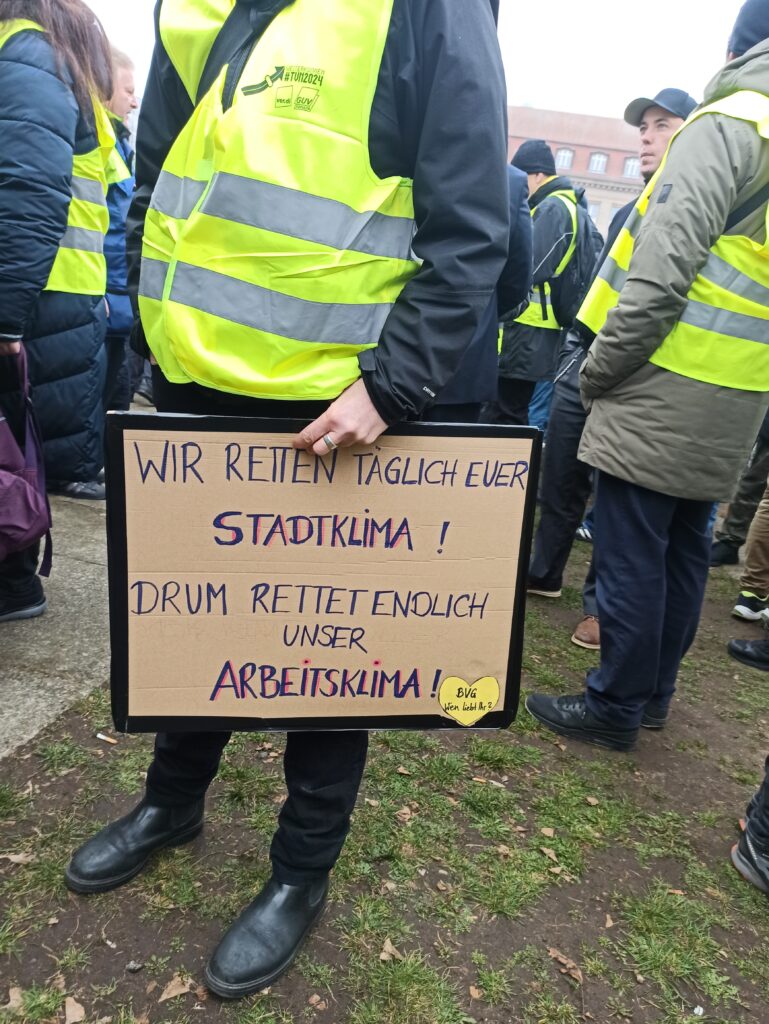 #TVN2024
ver.di
GUV
WIR RETTEN TÄGLICH EUER
STADTKLIMA !
DRUM RETTET ENDLICH
UNSER
ARBEITSKLIMA !
BVG
Wen liebt Ihr?